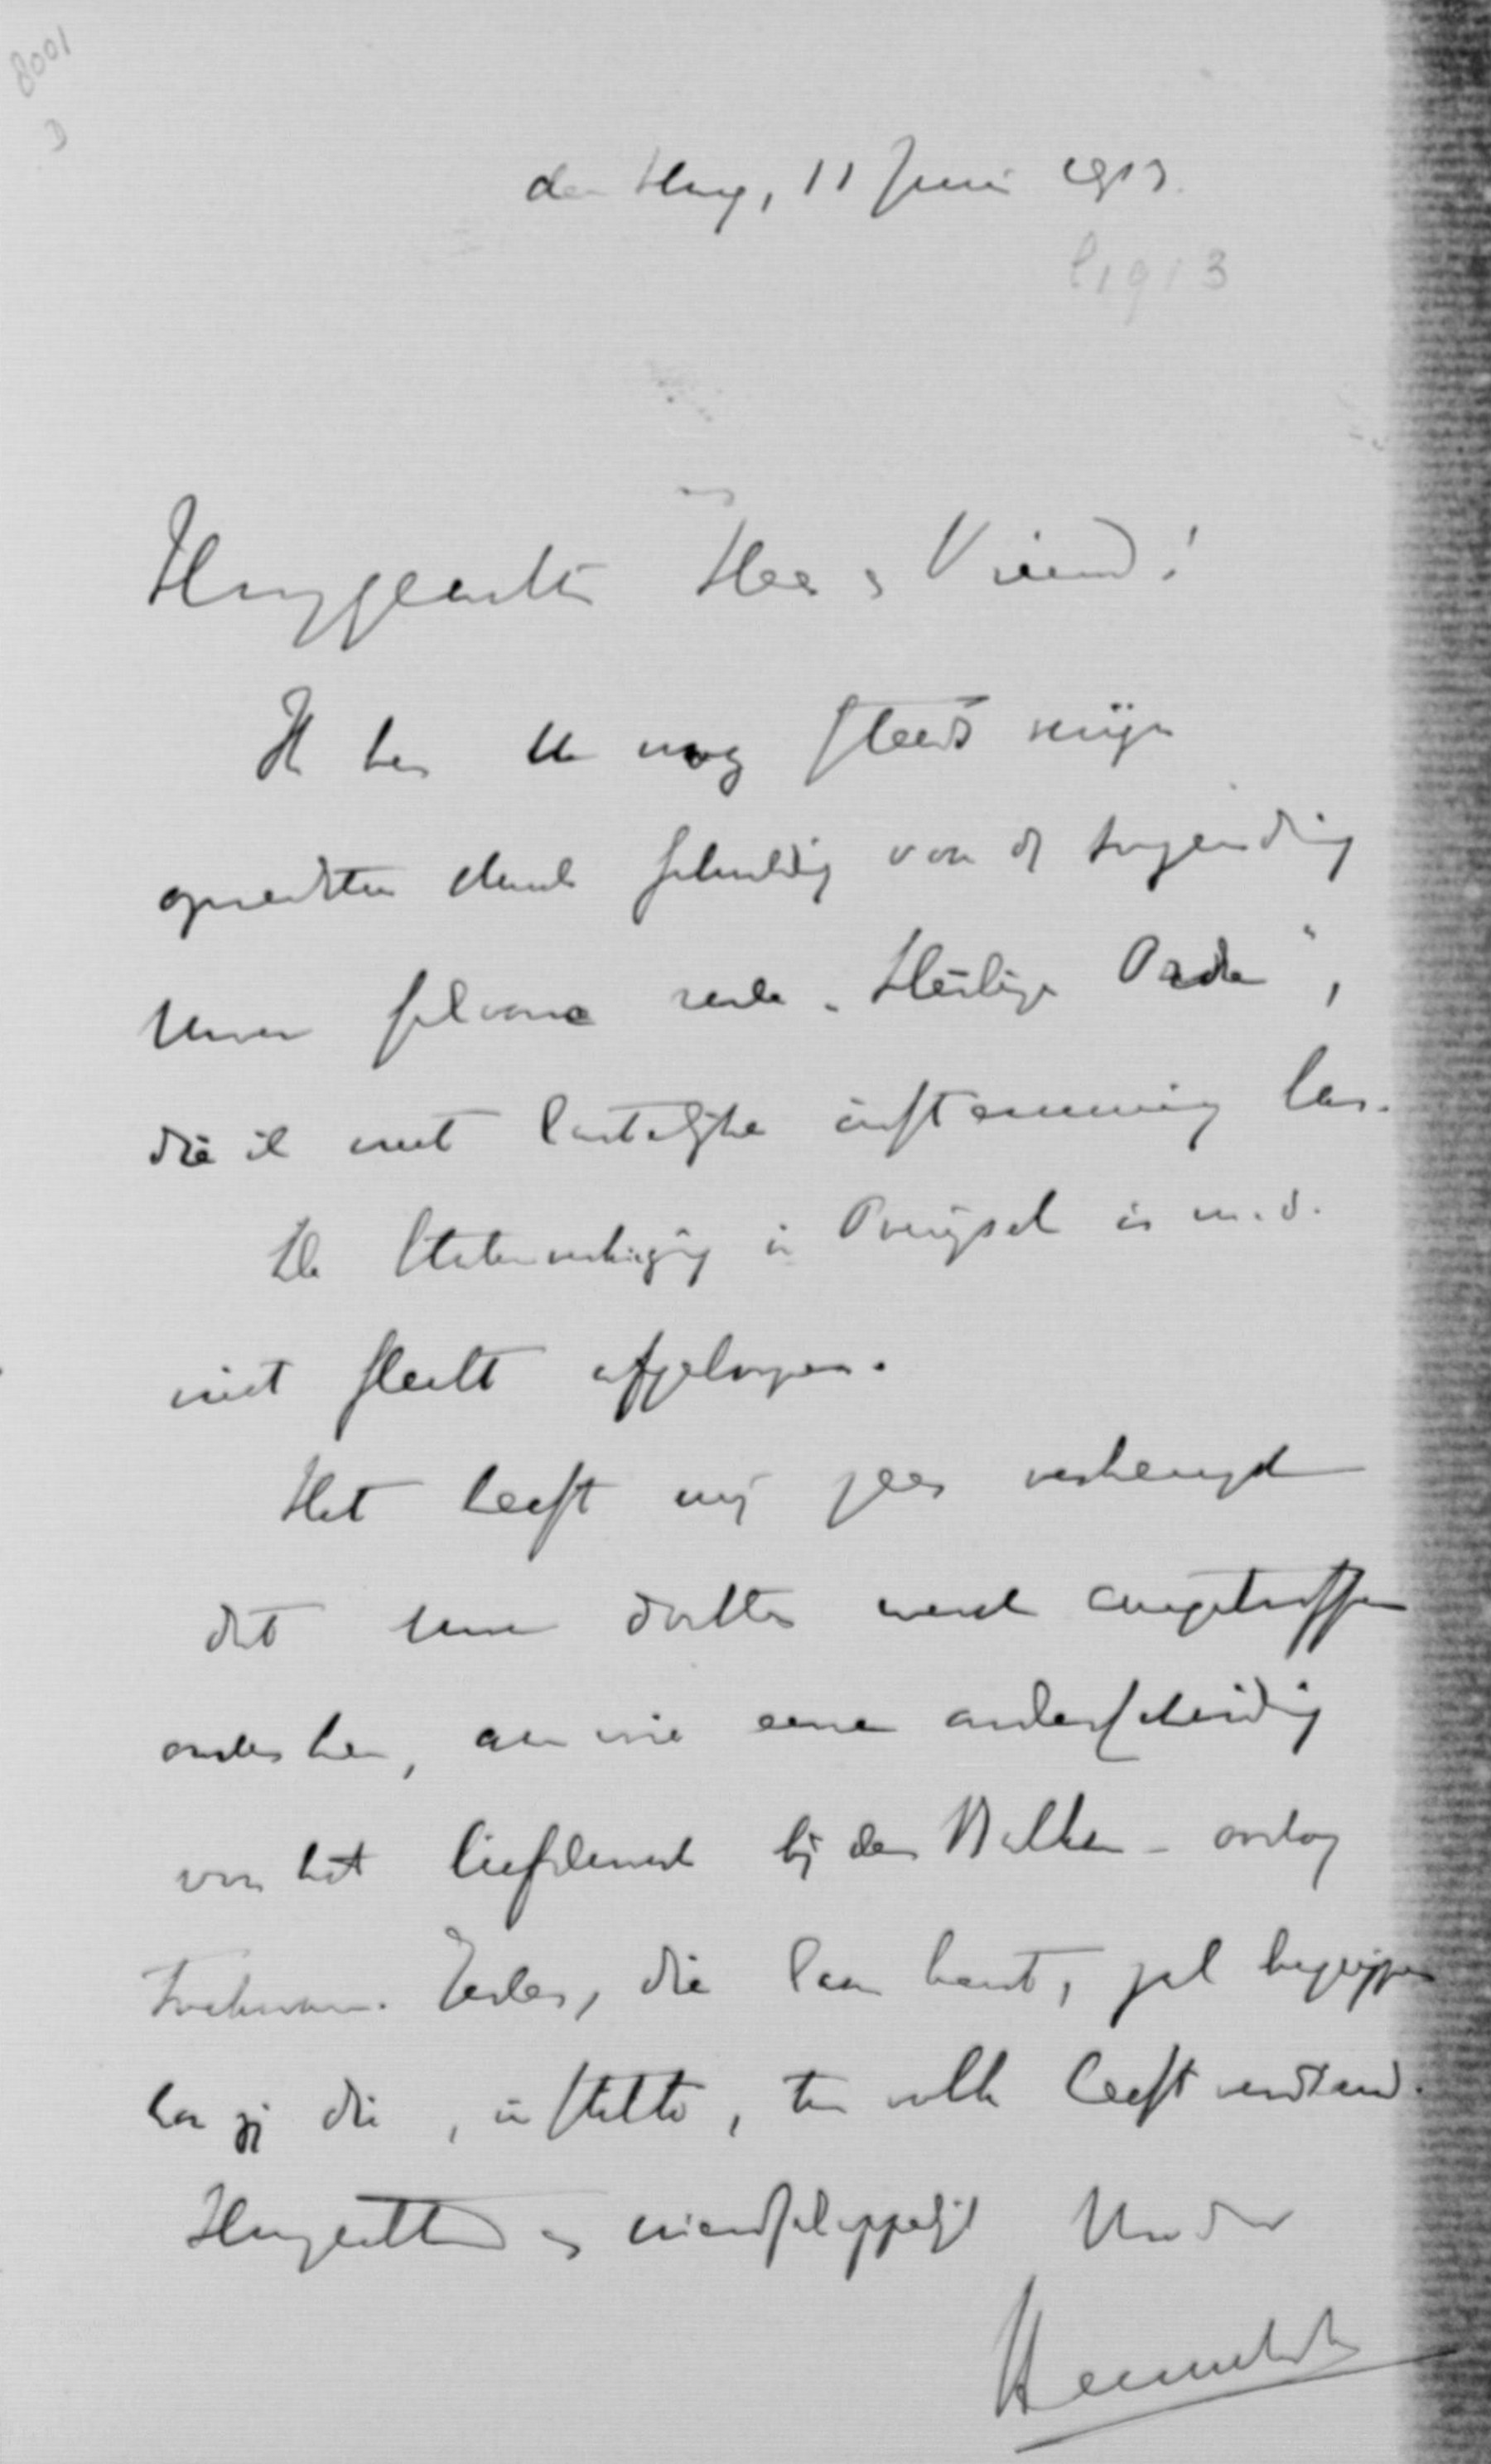 8001
D
den Haag, 11 Juni 1913.
[1913
Hooggeachte Heer en Vriend!
Ik ben U nog steeds mijn
oprechten dank schuldig voor de toezending
Uwer schoone rede „Heilige Orde",
die ik met hartelijke instemming las.
De Statenverkiezing in Overijsel is m.i.
niet slecht afgeloopen.
Het heeft mij zeer verheugd
dat Uwe dochter werd aangetroffen
onder hen, aan wie eene onderscheiding
voor het liefdewerk bij den Balkan-oorlog
toekwam. Ieder, die haar kent, zal begrijpen
hoe zij die, in stilte, ten volle heeft verdiend.
Hoogachtend en vriendschappelijk Uw dw
Heemskerk